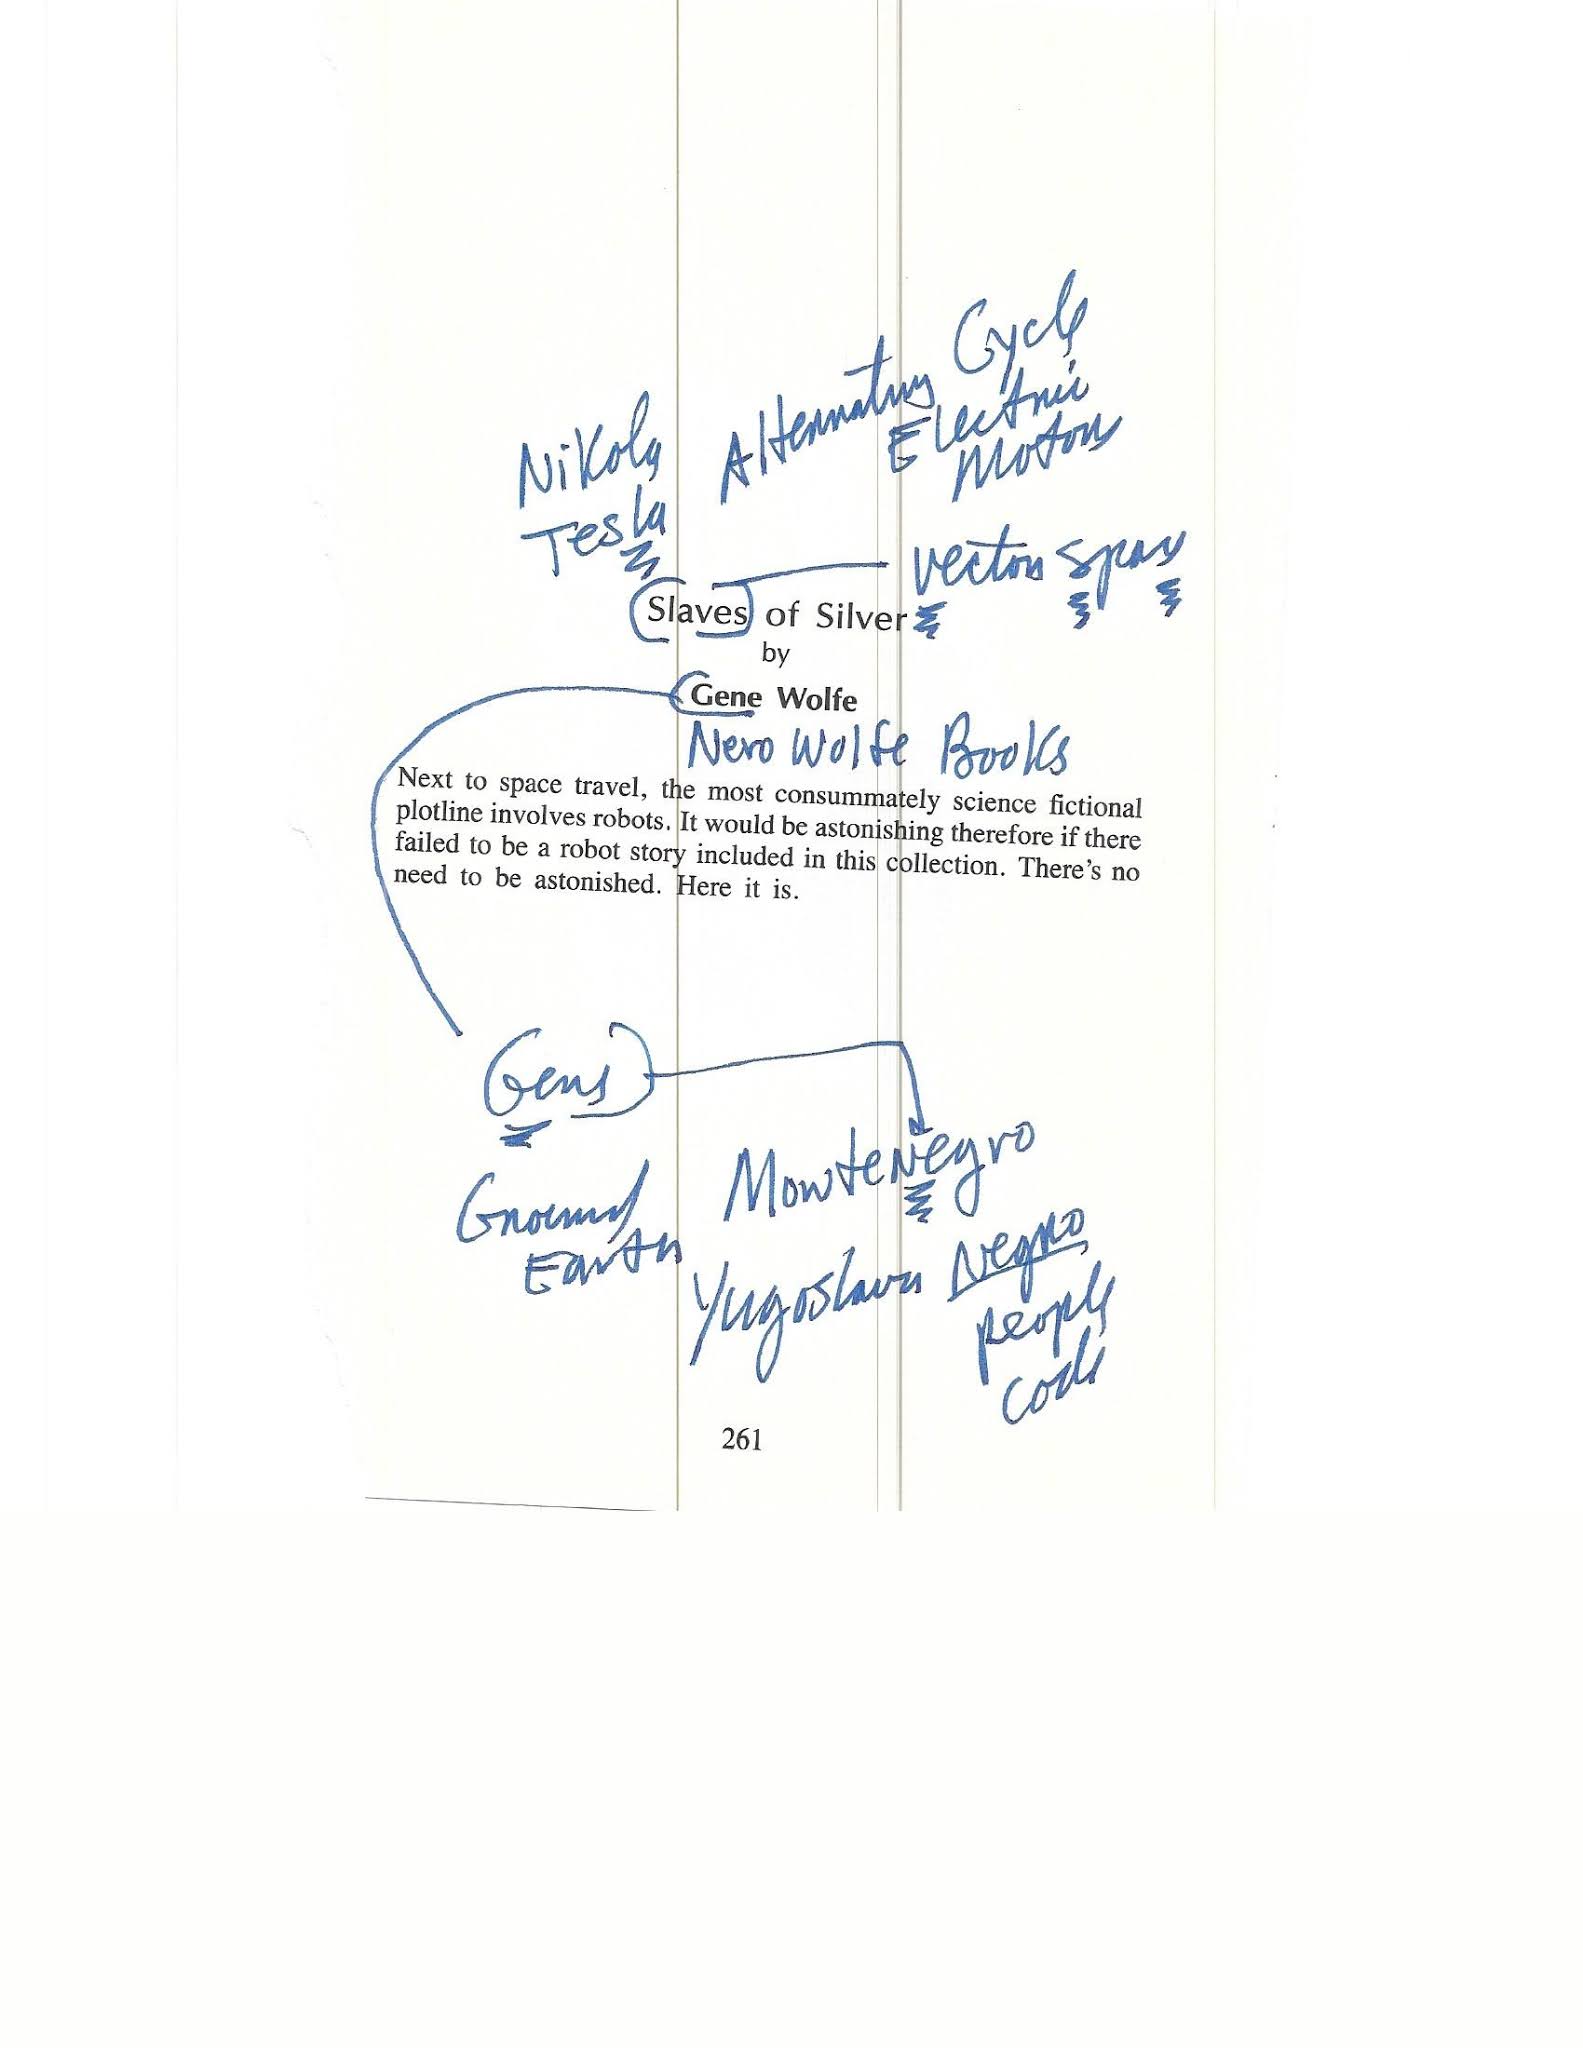 Cycle
Alternating
Electric
Motors
Nikola
Tesla
Vector Space
Slaves of Silver
by
Gene Wolfe
Nero Wolfe Books
Next to space travel, the most consummately science fictional
plotline involves robots. It would be astonishing therefore if there
failed to be a robot story included in this collection. There's no
need to be astonished. Here it is.
Gens
Montenegro
Ground
Earth
Yugoslavia Negro
people
code
261